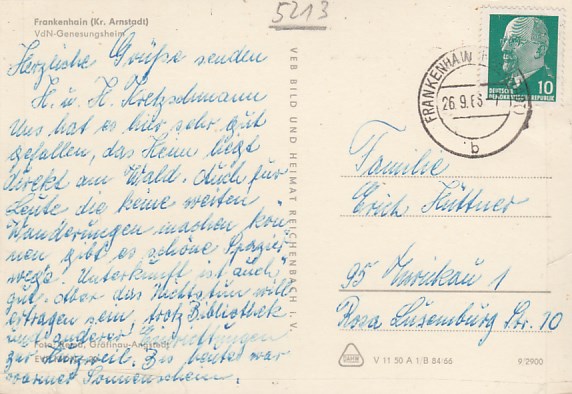 5213
Frankenhain (Kr. Arnstadt)
VdN-Genesungsheim
Herzliche Grüße senden
H. u. H. Kretzschmann
Uns hat es hier sehr gut
gefallen, das Heim liegt
direkt am Wald. Auch für
Leute die keine weiten
Wanderungen machen kön-
nen gibt es schöne Spazier
wege. Unterkunft ist auch
gut. Aber das Nichtstun will
ertragen sein, trotz Bibliothek
und anderer Einrichtungen
zur Kurzweil. Bis heute war
warmer Sonnenschein.
Foto: Gräfinau-Angstedt
VEB BILD UND HEIMAT REICHENBACH I. V.
DEUTSCHE
DEMOKRATISCHE REPUBLIK
10
FRANKENHAIN
26.9.6
b
Familie
Erich Hüttner
95 Zwickau 1
Rosa Luxemburg Str. 10
V 11 50 A 1/B 84/66
9/2900